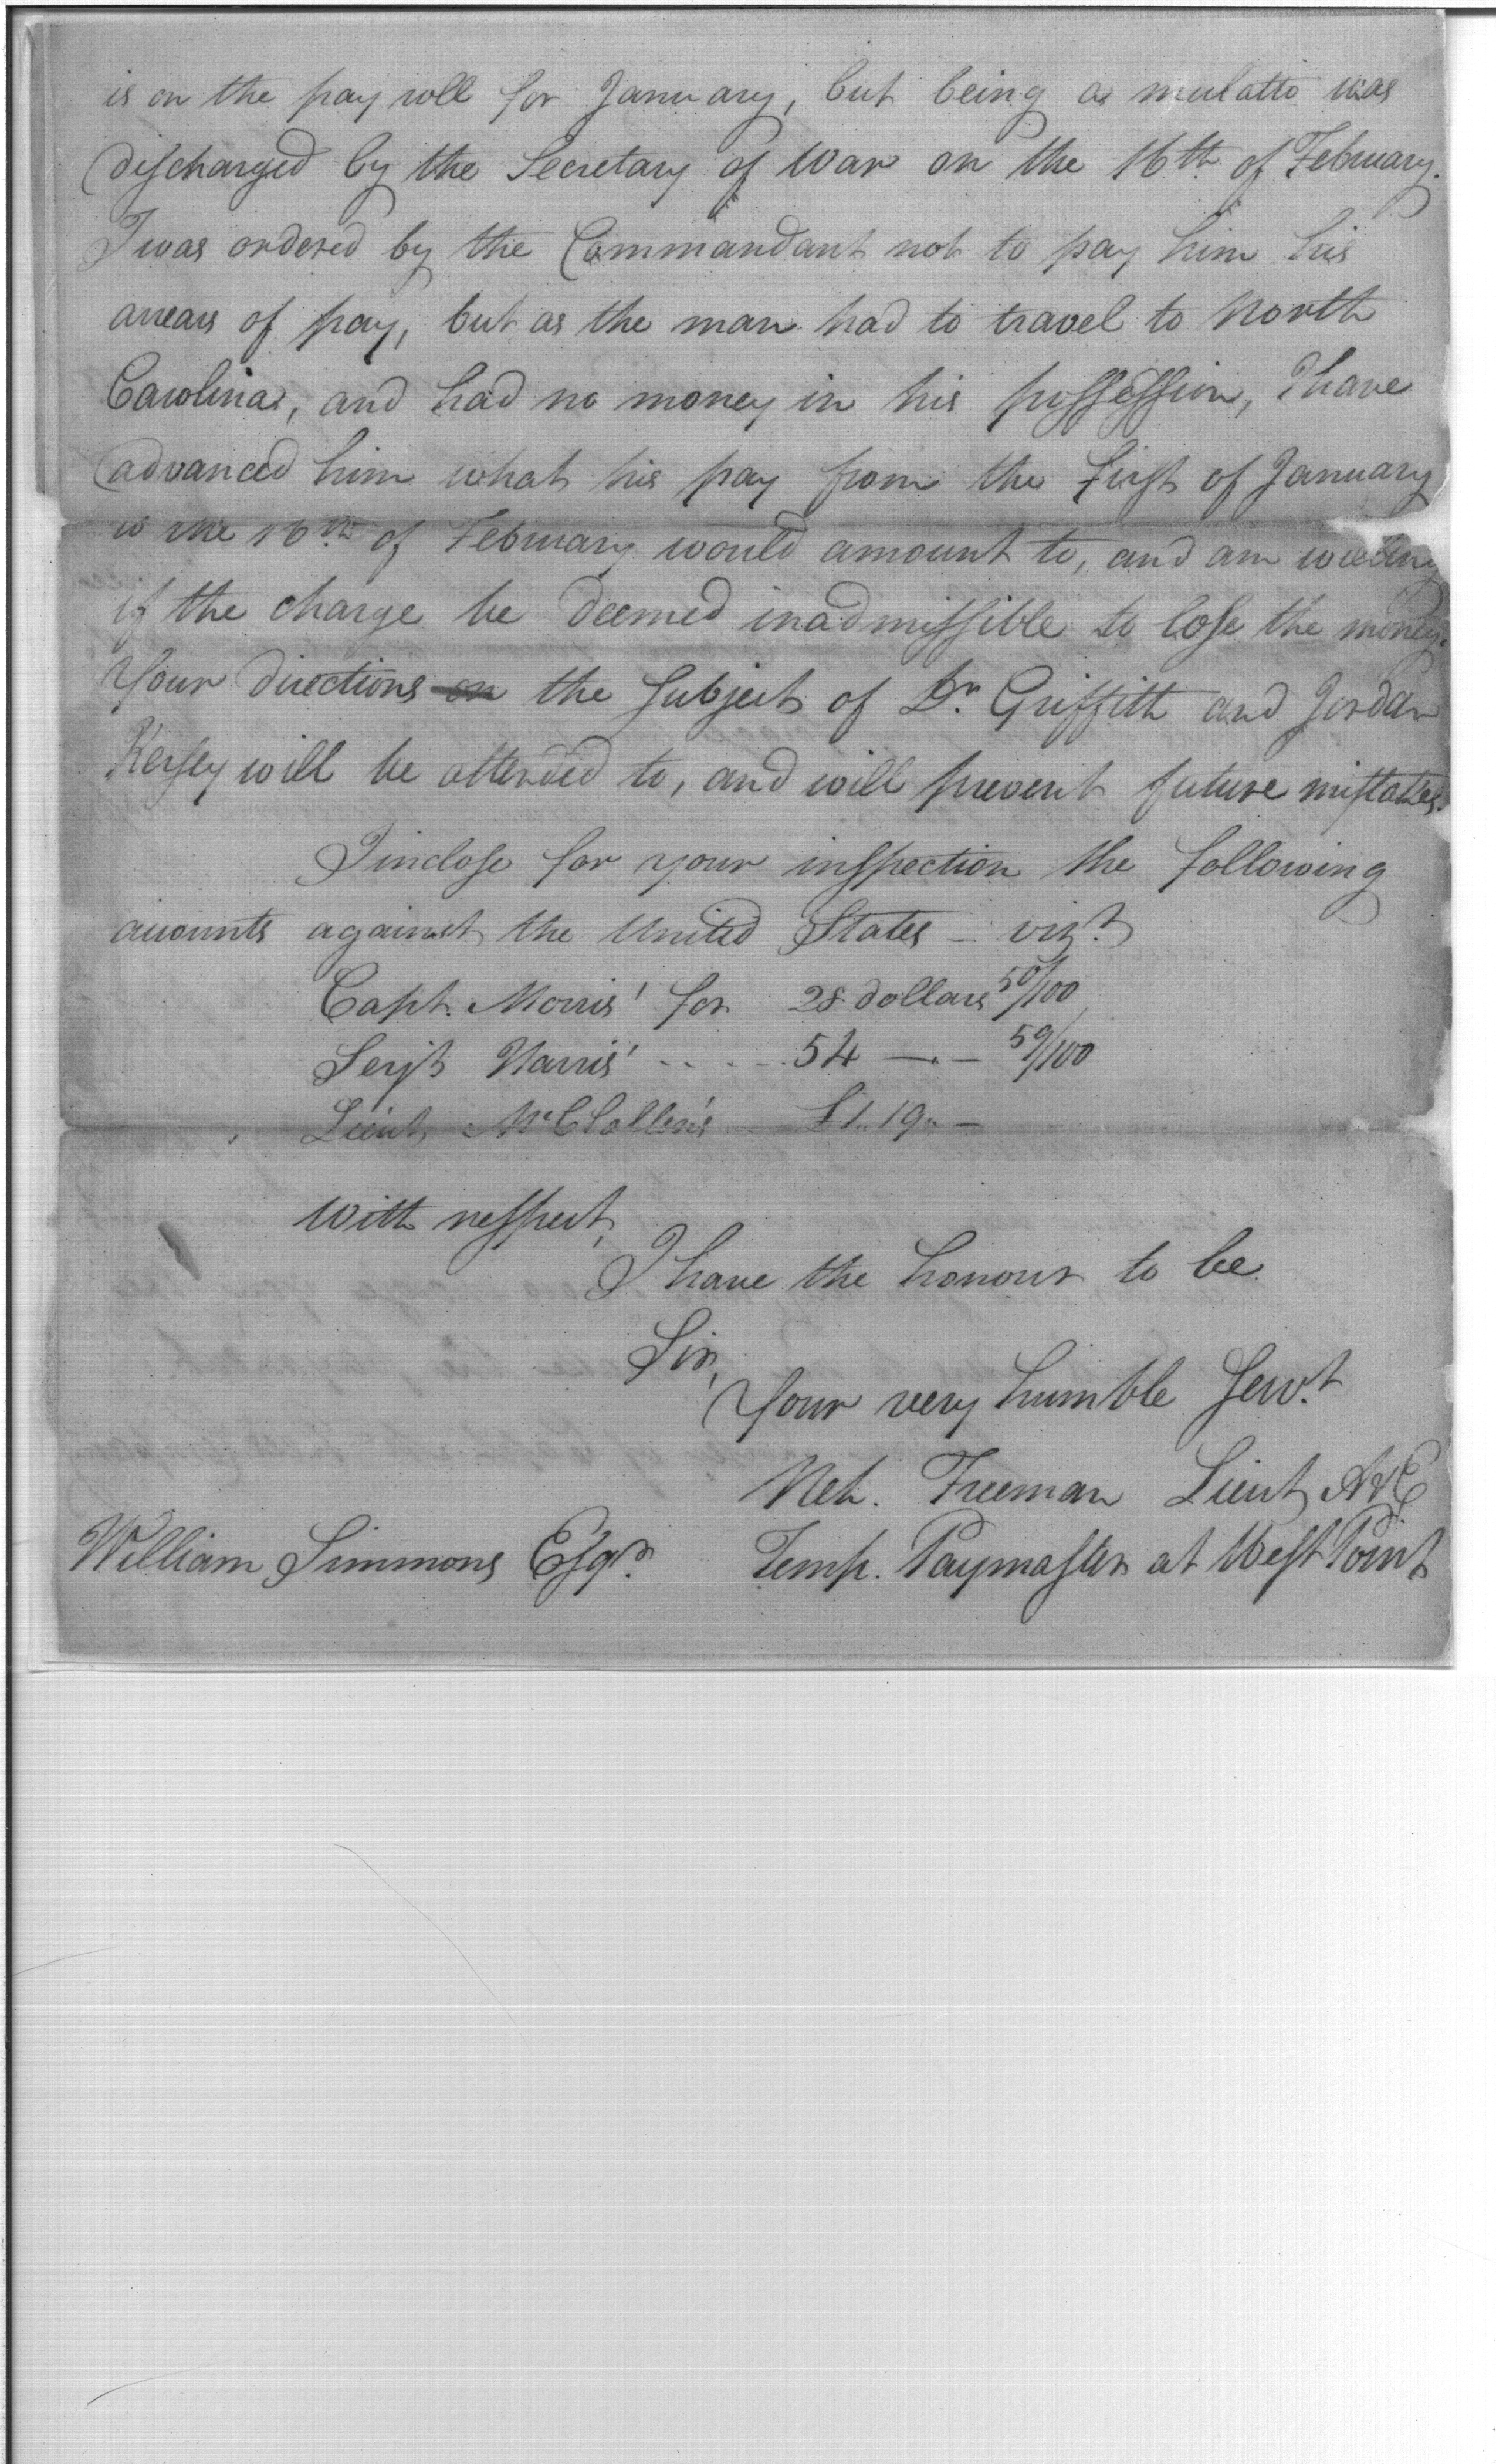 is on the pay roll for January, but being a mulatto was
discharged by the Secretary of War on the 16th of February.
I was ordered by the Commandant not to pay him his
arrears of pay, but as the man had to travel to North
Carolina, and had no money in his possession, I have
advanced him what his pay from the first of January
to the 16th of February would amount to, and am willing
if the charge be deemed inadmissible to lose the money.
Your directions on the subject of Dr. Griffith and Jordan
Kersey will be attended to, and will prevent future mistakes.
I inclose for your inspection the following
accounts against the United States – vizt
Capt. Morris' for 28 dollars 50/100
Serjt Harris' .. .. 54 —.— 50/100
Lieut McClallen's £1..19..–
With respect,
I have the honour to be
Sir,
Your very humble Servt
Neh. Freeman Lieut A&E
William Simmons Esqr. Temp. Paymaster at West Point